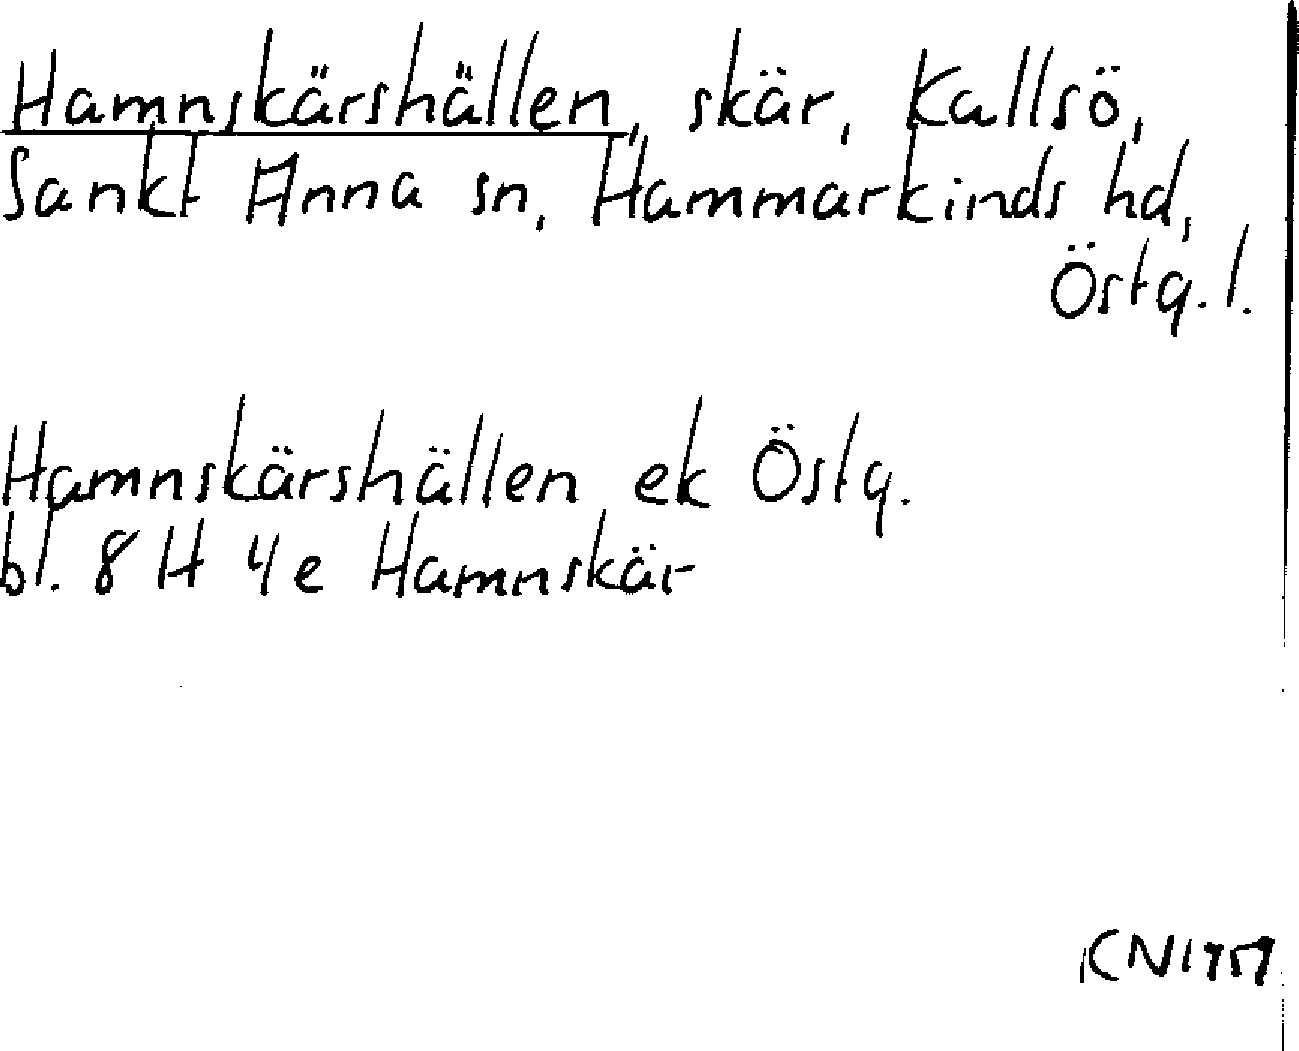 Hamnskärshällen, skär, Kallsö,
Sankt Anna sn, Hammarkinds hd,
Östg. l.
Hamnskärshällen ek Östg.
bl. 8 H 4e Hamnskär